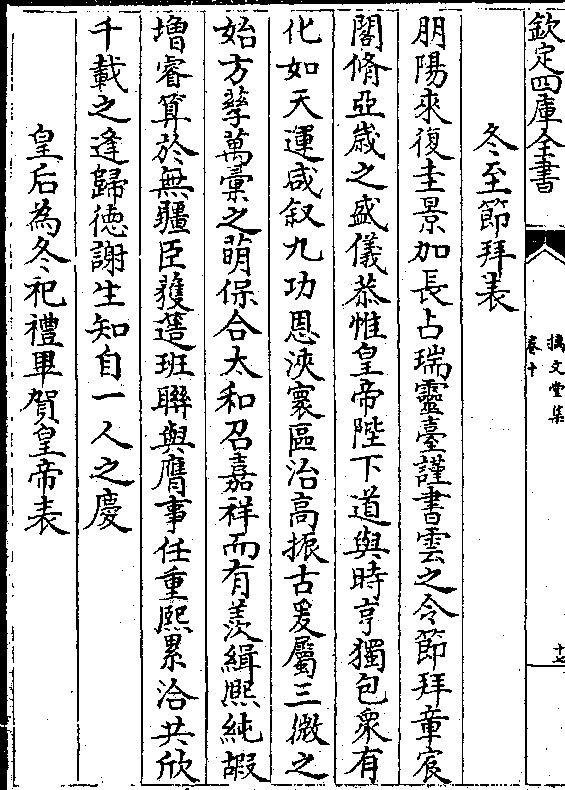 欽定四庫全書
摛文堂集
卷十
十七
冬至節拜表
朋陽來復圭景加長占瑞靈臺謹書雲之令節拜章宸
閣脩亞歲之盛儀恭惟皇帝陛下道與時亨獨包衆有
化如天運咸叙九功恩浹寰區治高振古爰屬三微之
始方孳萬彚之萌保合太和召嘉祥而有羨緝熈純嘏
增睿算於無疆臣獲簉班聨與膺事任重熈累洽共欣
千載之逢歸徳謝生知自一人之慶
皇后為冬祀禮畢賀皇帝表